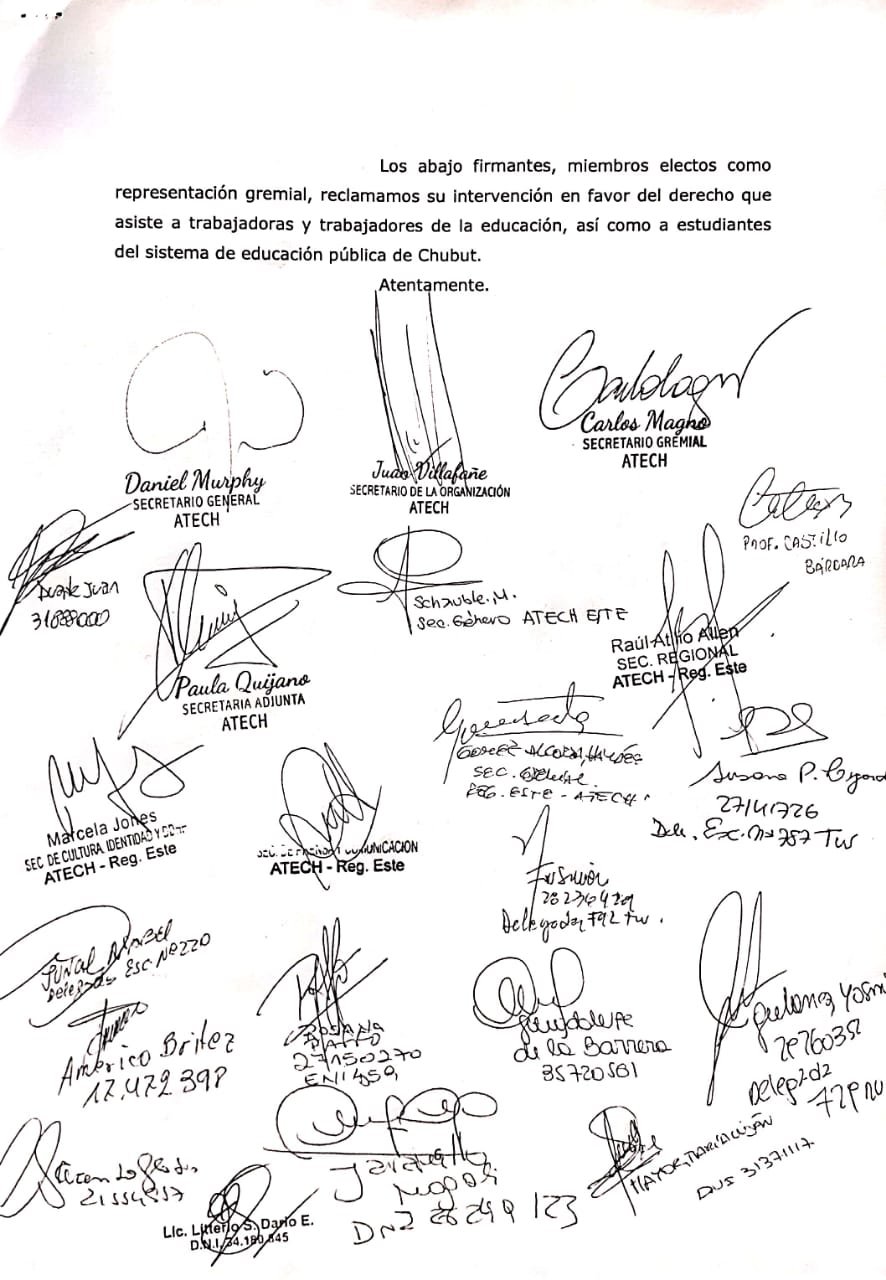 Los abajo firmantes, miembros electos como
representación gremial, reclamamos su intervención en favor del derecho que
asiste a trabajadoras y trabajadores de la educación, así como a estudiantes
del sistema de educación pública de Chubut.
Atentamente.
Daniel Murphy
SECRETARIO GENERAL
ATECH
Juan Villafañe
SECRETARIO DE LA ORGANIZACIÓN
ATECH
Carlos Magno
SECRETARIO GREMIAL
ATECH
PROF. CASTILLO
BÁRBARA
Juan
Schauble. M.
Sec. Género ATECH ESTE
Raúl Atilio Allen
SEC. REGIONAL
ATECH - Reg. Este
Paula Quijano
SECRETARIA ADJUNTA
ATECH
SEC.
REG. ESTE - ATECH
Susana P.
27141726
Del. Esc. Nº 757 TW
Marcela Jones
SEC DE CULTURA, IDENTIDAD Y
ATECH - Reg. Este
SEC. DE PRENSA Y COMUNICACIÓN
ATECH - Reg. Este
Delegada 792 TW.
Delegada ESC Nº 220
Americo Britez
17.472.398
ROSANA
27150270
Guadalupe
de la Barrera
35720561
Delegada
Lic. Literio S. Dario E.
D.N.I. 34.
MAYOR, MARÍA LUJÁN
DNI 31371117